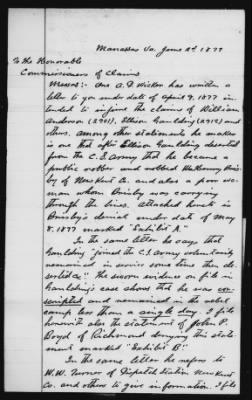 Manassas Va. June 2d 1877
To the Honorable
Commissioners of Claims
Messrs: One A. F. Hicken has written a
letter to you under date of April 9, 1877 in-
tended to injure the claims of William
Anderson (2901), Ellison Gaulding (2912) and
others. Among other statements he makes
is one that after Ellison Gaulding deserted
from the C.S. Army that he became a
public robber and robbed
by of New Kent Co. and also a poor wo-
man whom Brisby was carrying
through the lines. Attached hereto is
Brisby's denial under date of May
8. 1877 marked "Exhibit A."
In the same letter he says that
Gaulding "joined the C.S. Army voluntarily
remained in service some time then de-
serted &c". The sworn evidence on file in
Gaulding's case shows that he was con-
scripted and remained in the rebel
camp less than a single day. I file
herewith also the statement of John P.
Boyd of Richmond denying this state-
ment marked "Exhibit B"
In the same letter he refers to
W. W. Turner of Dispatch Station New Kent
Co. and others to give information. I file